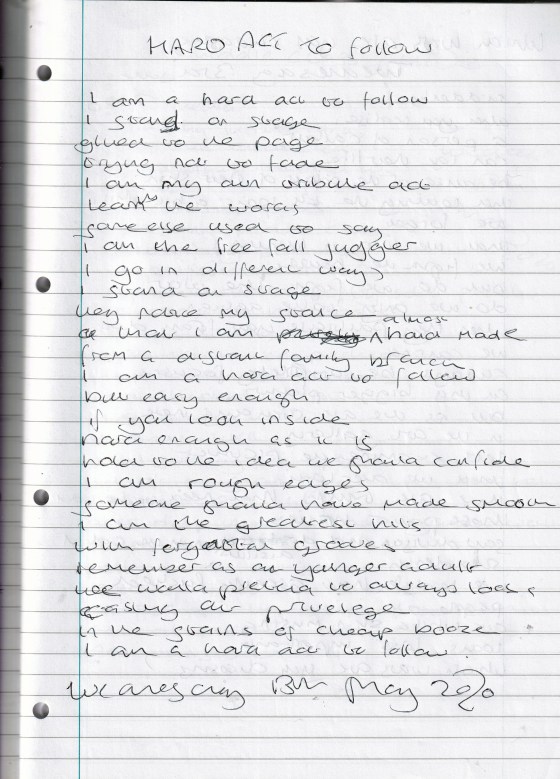 HARD ACT To follow
I am a hard act to follow
I stand on stage
glued to the page
trying not to fade
I am my own tribute act
learn the words
someone else used to say
I am the free fall juggler
I go in different ways
I stand on stage
they notice my stance
or that I am almost hand made
from a distant family branch
I am a hard act to follow
but easy enough
if you look inside
hard enough as it is
hold to the idea we should confide
I am rough edges
someone should have made smooth
I am the greatest hits
with forgotten grooves
remember as a younger adult
we would pretend to always lose
easing our privelege
in the strains of cheap booze
I am a hard act to follow.
Wednesday 13th May 2020